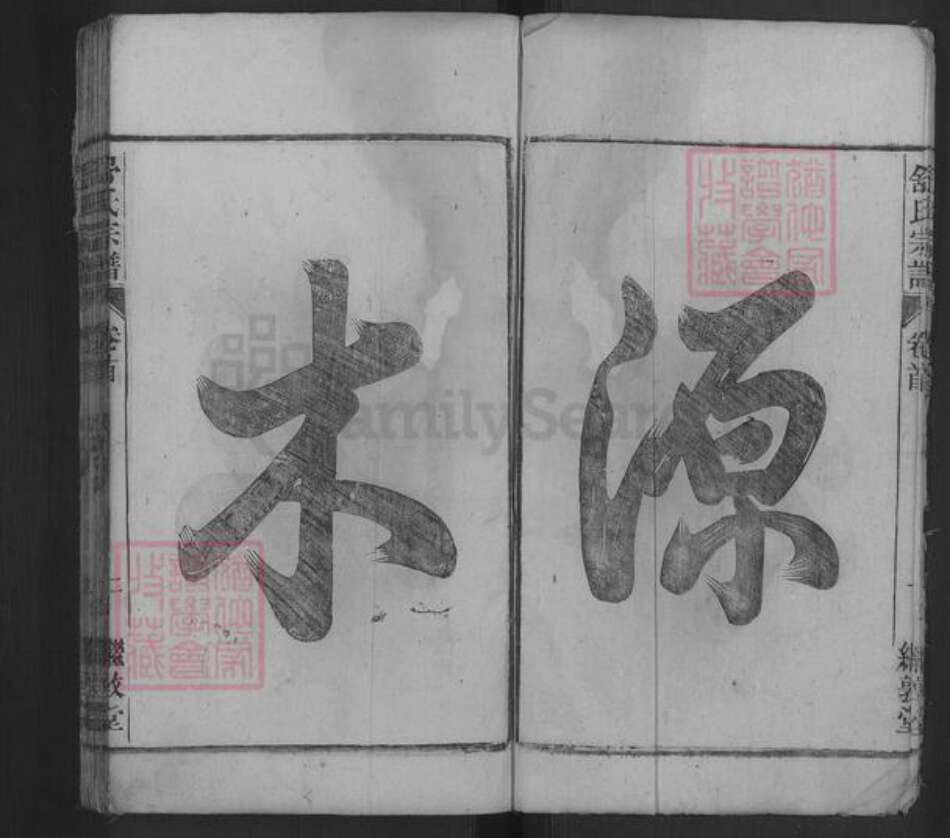 舒氏宗譜
卷首
一
繼敦堂
源
木
舒氏宗譜
卷首
一
繼敦堂
猶他家譜學會收藏
猶他家譜學會收藏
FamilySearch